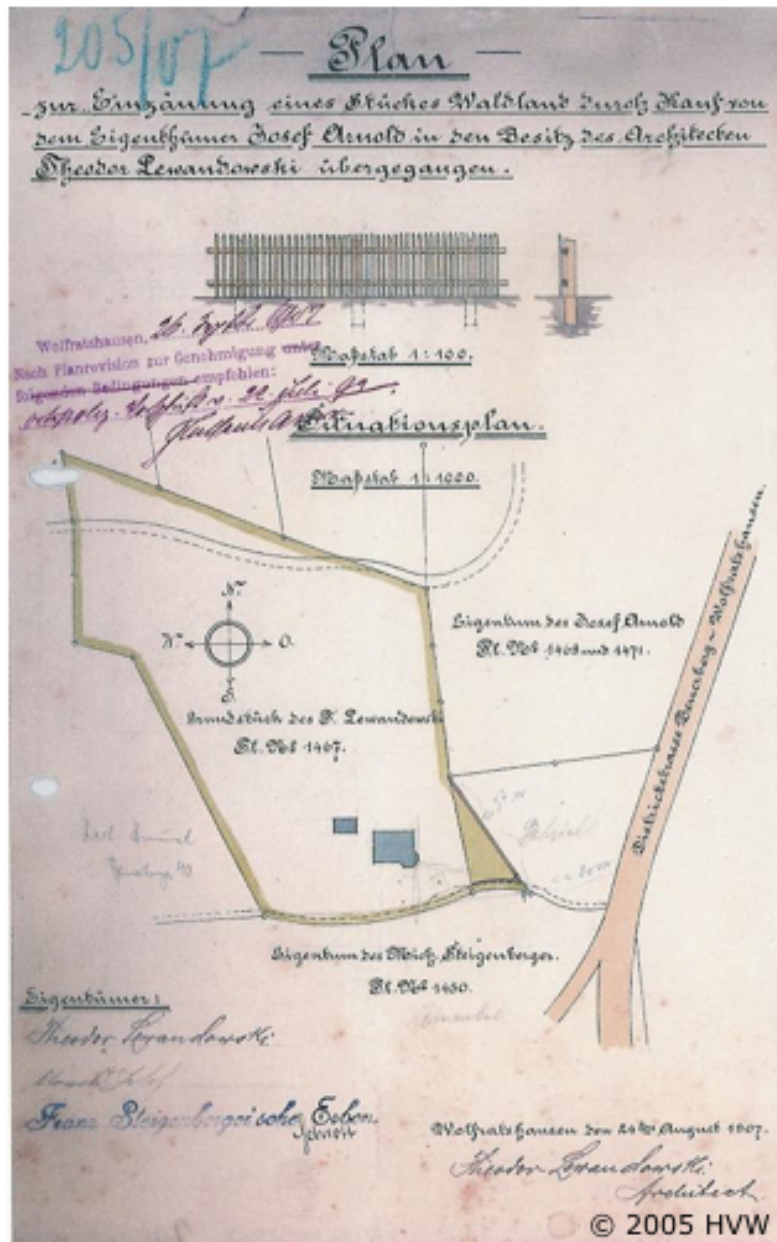 205/07
— Plan —
zur Einzäunung eines Stückes Waldland durch Kauf von
dem Eigenthümer Josef Arnold in den Besitz des Architecten
Theodor Lewandowski übergegangen.
Maßstab 1:100.
Wolfratshausen, 26.
Nach Planrevision zur Genehmigung unter
folgenden Bedingungen empfohlen:
Situationsplan.
Maßstab 1:1000.
N.
W. O.
S.
Eigentum des Josef Arnold
Pl. No 1468 und 1471.
Grundstück des T. Lewandowski
Pl. No 1467.
Districtstrasse Beuerberg - Wolfratshausen.
Eigentum des Mich. Steigenberger.
Pl. No 1450.
Eigentümer:
Theodor Lewandowski
Franz Steigenberger'sche Erben
Wolfratshausen den 24ten August 1907.
Theodor Lewandowski
Architect
© 2005 HVW